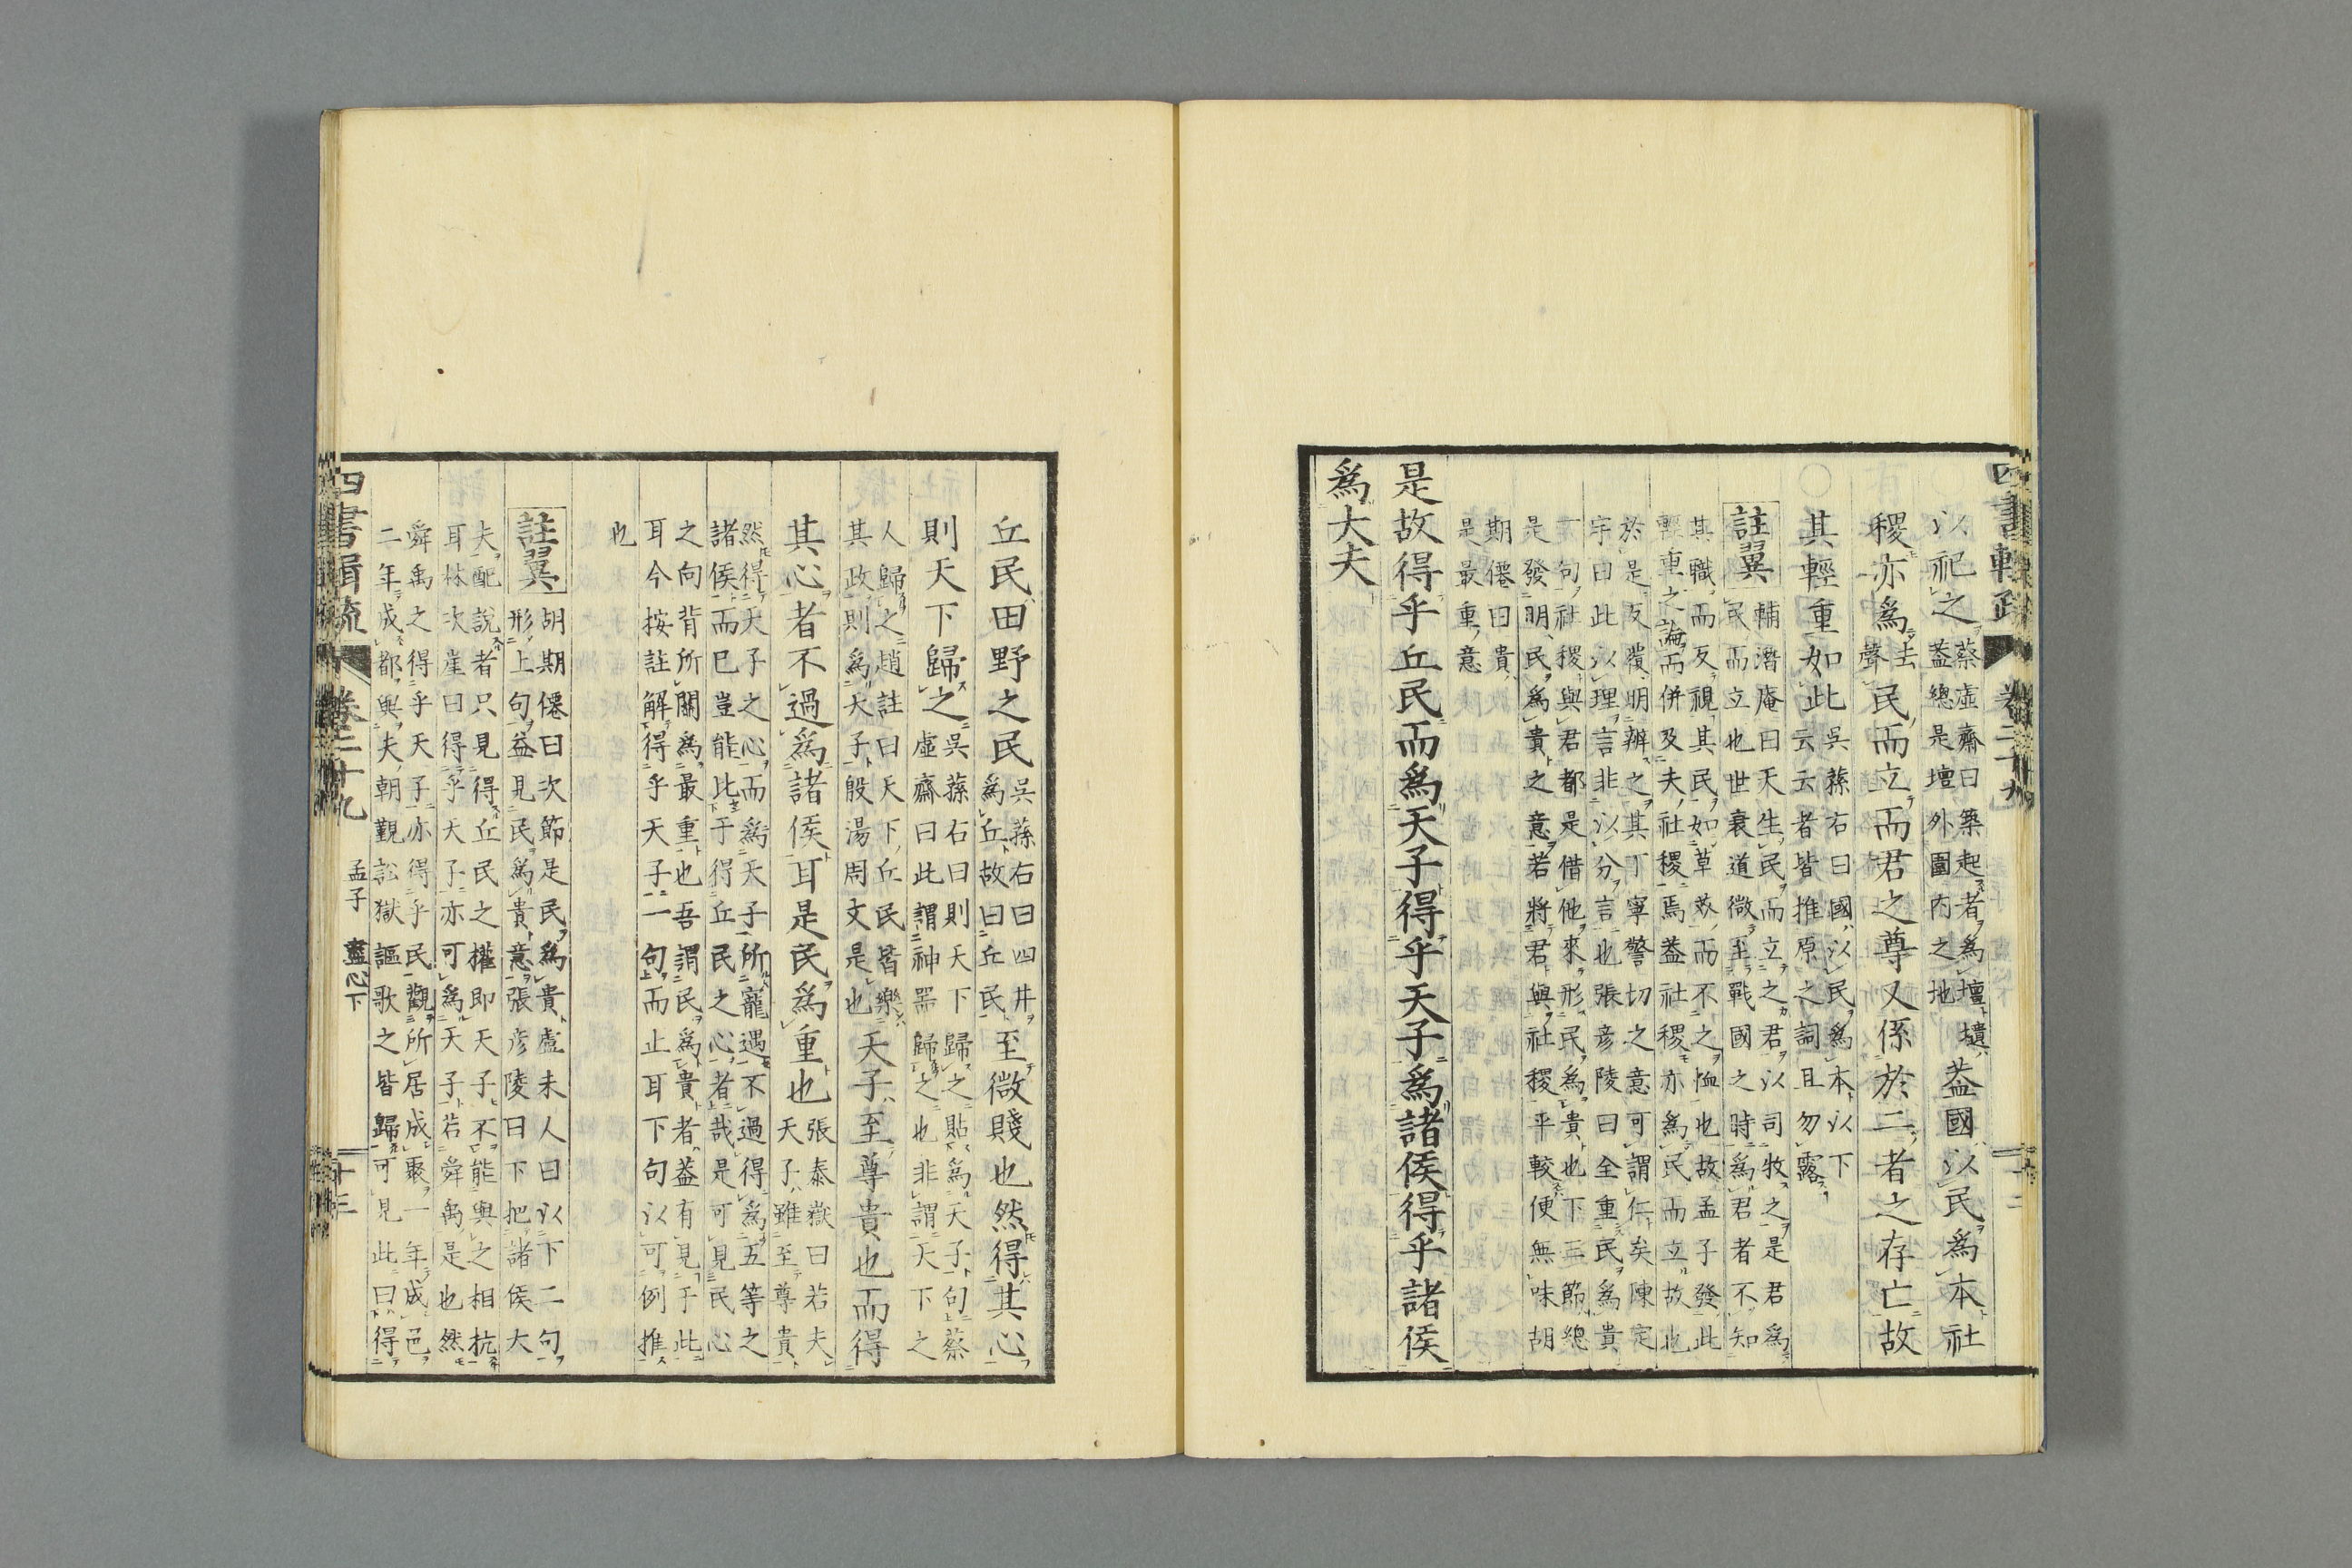 四書輯疏 卷二十九 十二
以祀之蔡虛齋曰築起者爲壇壝蓋國以民爲本社
蓋總是壇外圍內之地
稷亦爲去聲民而立而君之尊又係於二者之存亡故
其輕重如此吳蓀右曰國以民爲本以下
云云者皆推原之詞且勿露
註翼輔潛庵曰天生民而立之君以司牧之是君爲
民而立也世衰道微至戰國之時爲君者不知
其職而反視其民如草芥而不之恤也故孟子發此
輕重之論而併及夫社稷焉蓋社稷亦爲民而立故也
於是反覆明辨之其丁寧警切之意可謂仁矣陳定
宇曰此以理言非以分言也張彥陵曰全重民爲貴
一句社稷與君都是借他來形民爲貴也下三節總
是發明民爲貴之意若將君與社稷平較便無味胡
期僊曰貴
是最重意
是故得乎丘民而爲天子得乎天子爲諸侯得乎諸侯
爲大夫
丘民田野之民吳蓀右曰四井
爲丘故曰丘民至微賤也然得其心
則天下歸之吳蓀右曰則天下歸之貼爲天子句蔡
虛齋曰此謂神器歸之也非謂天下之
人歸之趙註曰天下丘民皆樂
其政則爲天子殷湯周文是也天子至尊貴也而得
其心者不過爲諸侯耳是民爲重也張泰嶽曰若夫
天子雖至尊貴
然得天子之心而爲天子所寵遇不過得爲五等之
諸侯而已豈能比于得丘民之心者哉是可見民心
之向背所關爲最重也吾謂民爲貴者蓋有見于此
耳今按註解得乎天子一句而止耳下句以可例推
也
註翼胡期僊曰次節是民爲貴盧未人曰以下二句
形上句益見民爲貴意張彥陵曰下把諸侯大
夫配說者只見得丘民之權即天子不能與之相抗
耳林次崖曰得乎天子亦可爲天子若舜禹是也然
舜禹之得乎天子亦得乎民觀所居成聚一年成邑
二年成都與夫朝覲訟獄謳歌之皆歸可見此曰得
四書輯疏 卷二十九 孟子 盡心下 十三